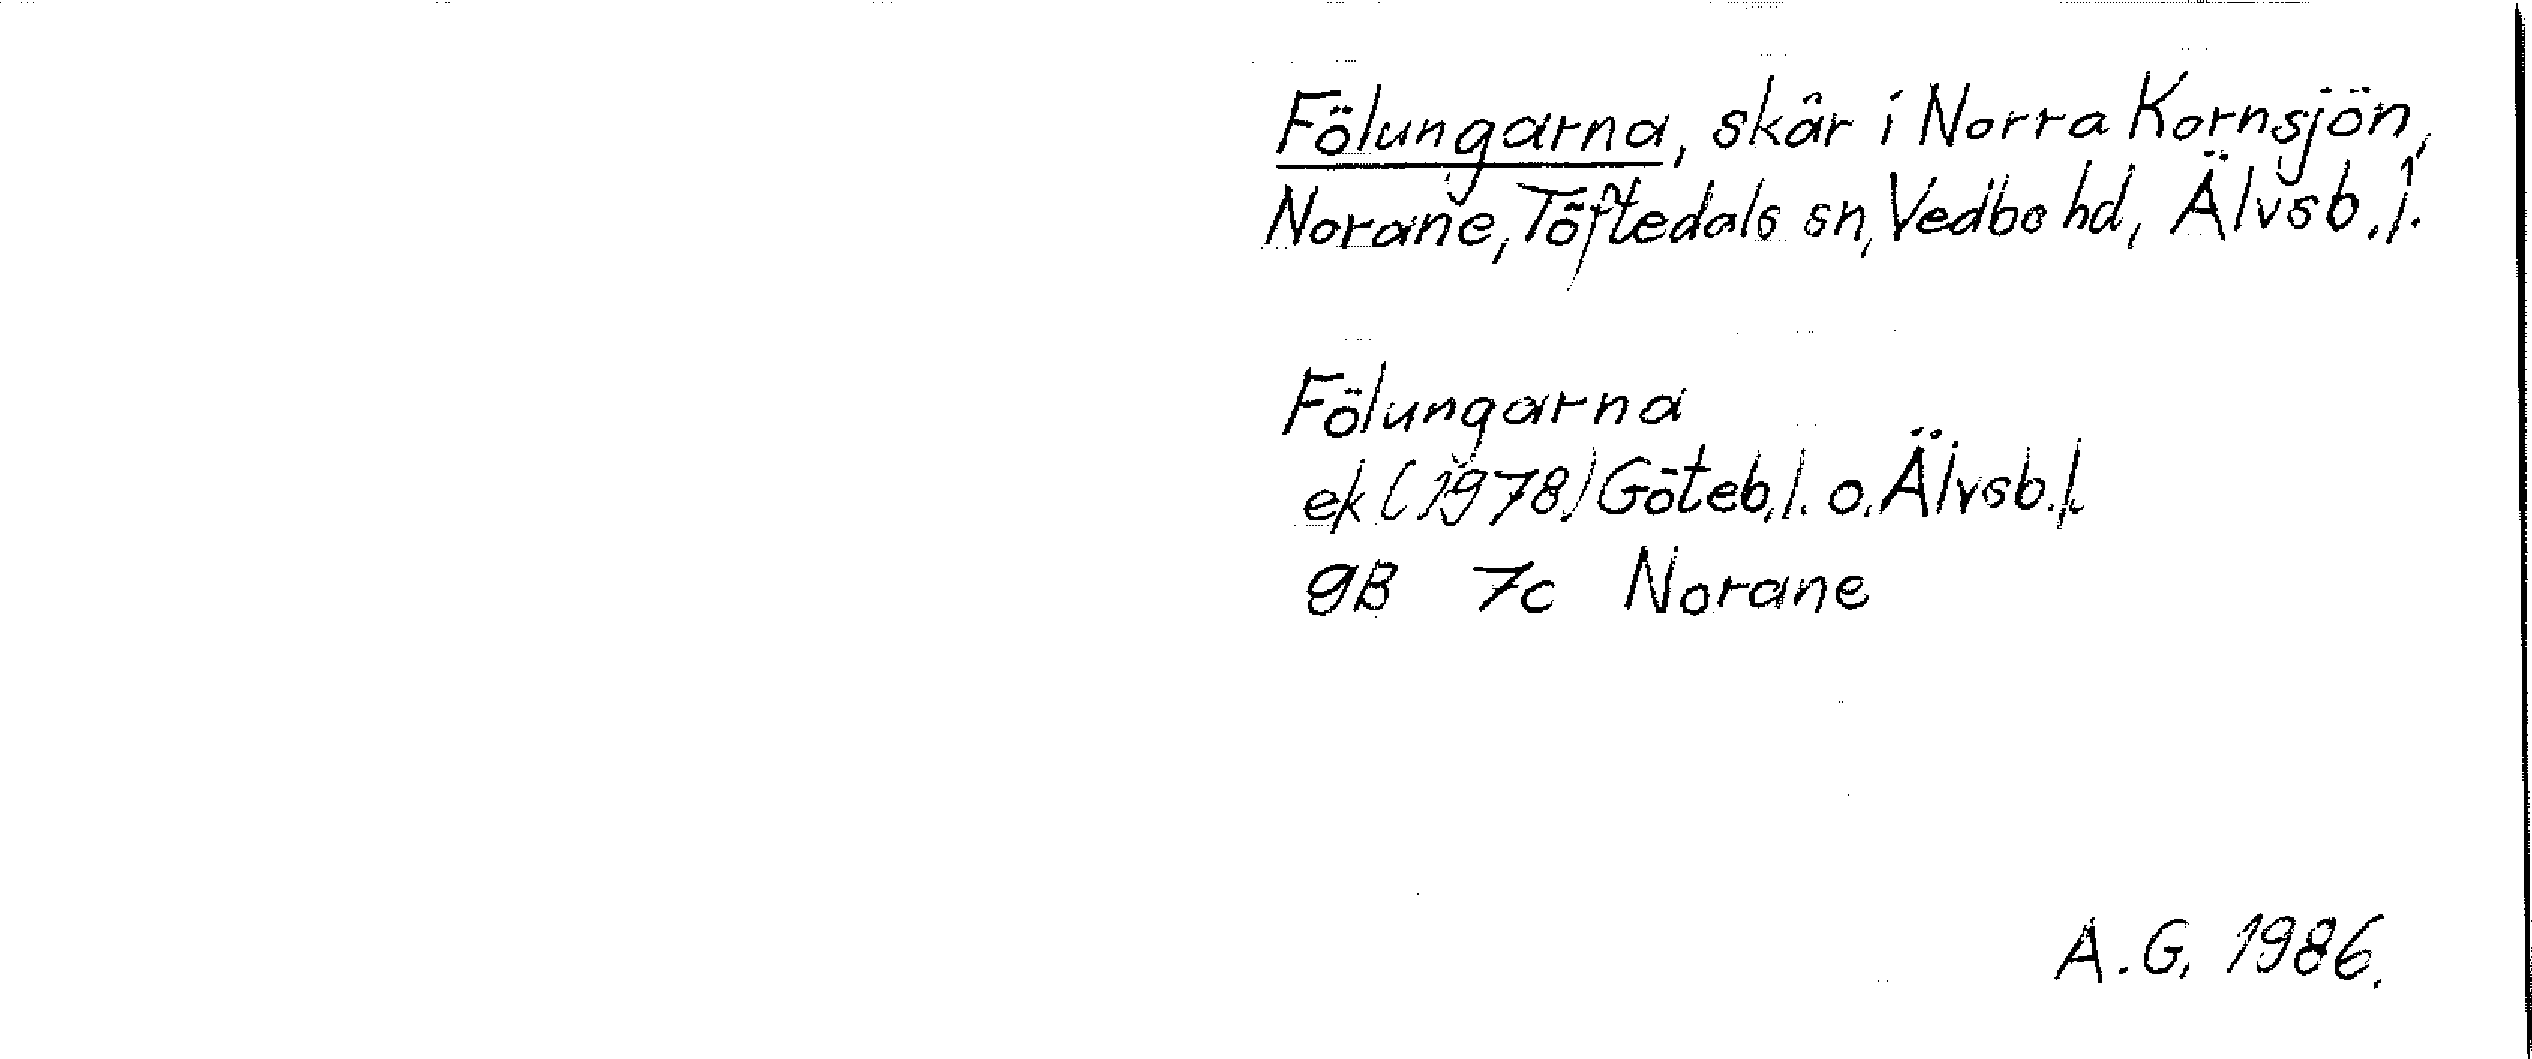 Fölungarna, skär i Norra Kornsjön,
Norane, Töftedals sn, Vedbo hd, Älvsb. l.
Fölungarna
ek (1978) Göteb. l. o. Älvsb. l.
9B 7c Norane
A.G. 1986.